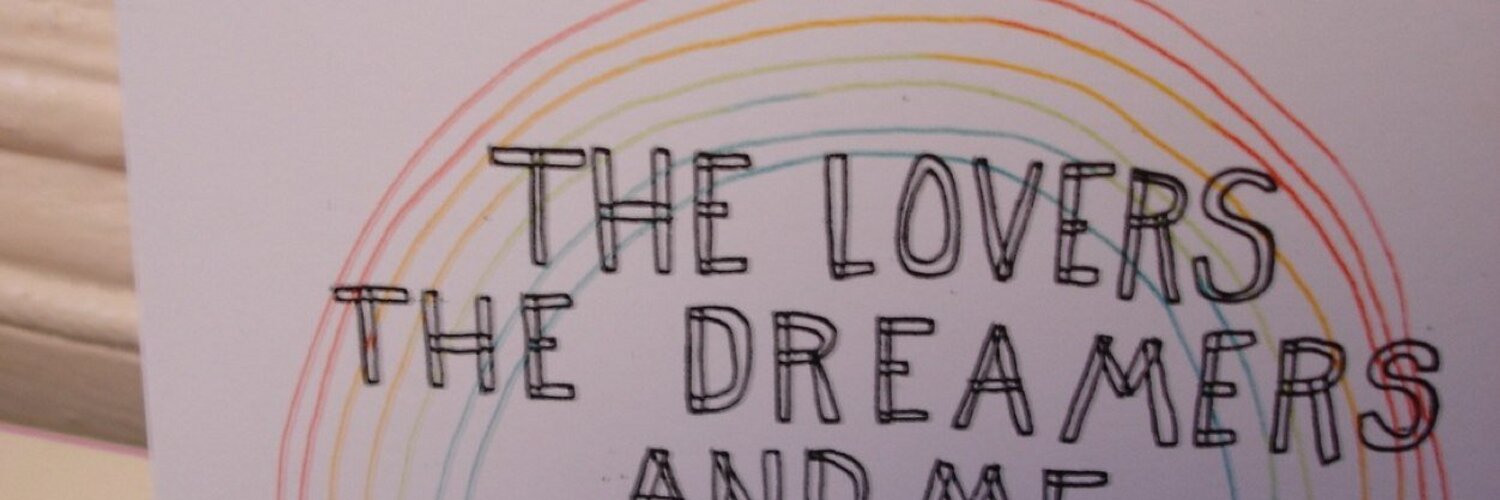 THE LOVERS
THE DREAMERS
AND ME